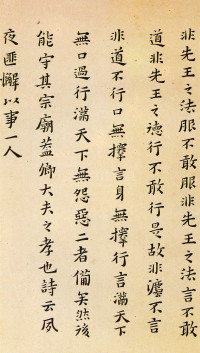 非先王之法服不敢服非先王之法言不敢
道非先王之德行不敢行是故非法不言
非道不行口無擇言身無擇行言滿天下
無口過行滿天下無怨惡三者備矣然後
能守其宗廟蓋卿大夫之孝也詩云夙
夜匪懈以事一人